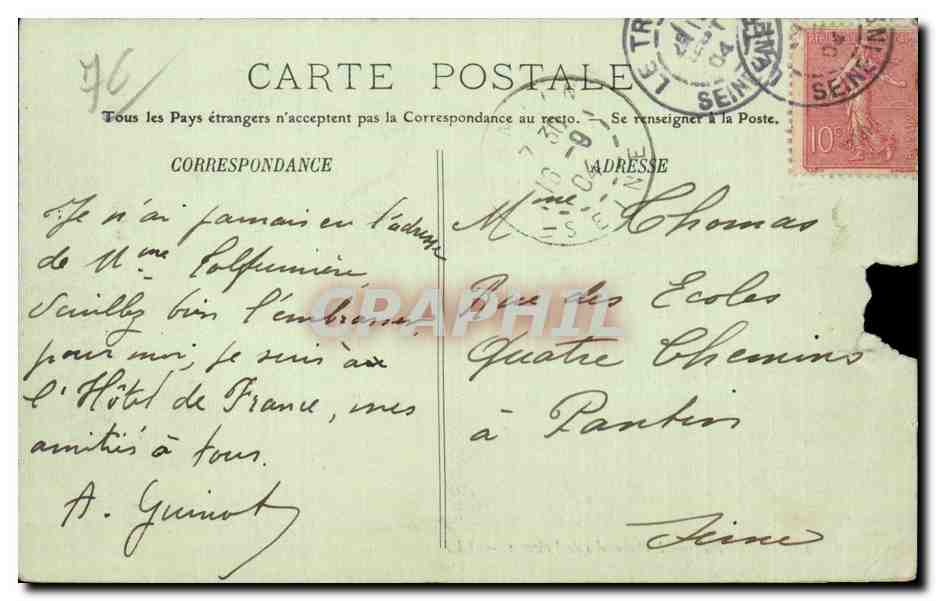 76
CARTE POSTALE
Tous les Pays étrangers n'acceptent pas la Correspondance au recto. — Se renseigner à la Poste.
CORRESPONDANCE
Je n'ai jamais eu l'adresse
de Mme
Veuillez bien l'embrasser
pour moi, je suis à
l'Hôtel de France, mes
amitiés à tous.
A. Guinot
ADRESSE
Mme Thomas
Rue des Ecoles
Quatre Chemins
à Pantin
Seine
LE TR
SEINE
04
SEINE
04
10
7 30
16 -9
04
SEINE
CPAPHIL